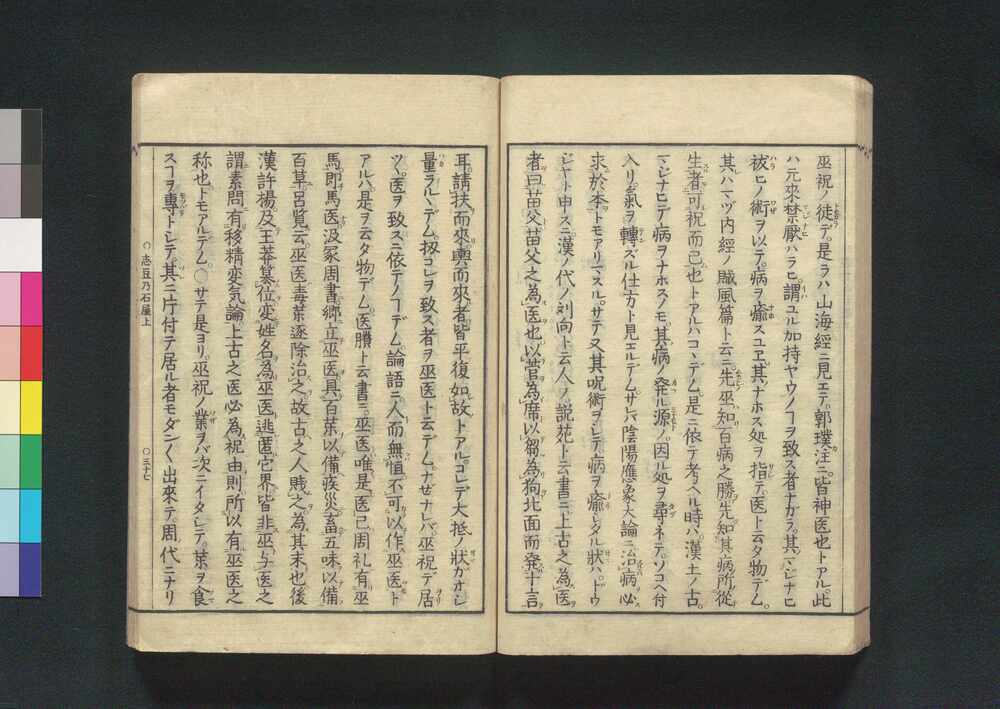 巫祝ノ徒デ是ラハ山海經ニ見エテ郭璞注ニ皆神医也トアル此
ハ元來禁厭ハラヒ謂ユル加持ヤウノヿヲ致ス者ナガラ其マジナヒ
祓ヒノ術ヲ以テ病ヲ癒スユヱ其ナホス処ヲ指テ医ト云タ物デム
其ハマヅ内經ノ賊風篇ト云ニ先巫知百病之勝先知其病所從
生者可祝而已也トアルハコヽデム是ニ依テ考ヘル時ハ漢土ノ古
マジナヒデ病ヲナホスノモ其病ノ発ル源ノ因ル処ヲ尋ネテソコヘ付
入リ氣ヲ轉ズル仕方ト見エルデムサレバ陰陽應象大論ニ治病必
求於本トモアリマスルサテ又其呪術ヲシテ病ヲ癒シタル狀ハドウ
ジヤト申スニ漢ノ代ノ刘向ト云人ノ説苑ト云書ニ上古之為医
者曰苗父苗父之為医也以菅為席以芻為狗北面而発十言
耳請扶而來輿而來者皆平復如故トアルコレデ大抵ノ狀ガオシ
量ラルヽデム扨コレヲ致ス者ヲ巫医ト云デムナゼナレバ巫祝デ居
ツヽ医ヲ致スニ依テノヿデム論語ニ人而無恒不可以作巫医ト
アルハ是ヲ云タ物デム医賸ト云書ニ巫医唯是医已周礼有巫
馬即馬医汲冢周書郷立巫医具百藥以備疾災畜五味以備
百草呂覧云巫医毒藥逐除治之故古之人賎之為其末也後
漢許楊及王莽簒位変姓名為巫医逃匿它界皆非巫与医之
謂素問有移精変気論上古之医必為祝由則所以有巫医之
称也トモアルデム〇サテ是ヨリ巫祝ノ業ヲバ次ニイタシテ藥ヲ食
スヿヲ專トシテ其ニ庁付テ居ル者モダン〳〵出來テ周ノ代ニナリ
〇志豆乃石屋上
〇三十七